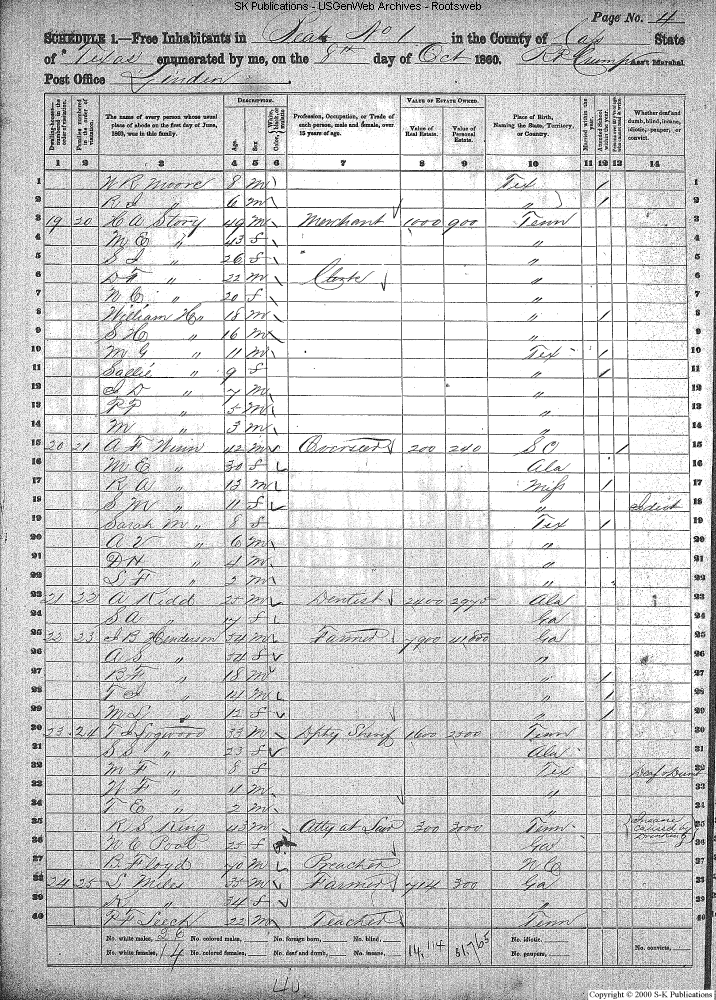 SK Publications - USGenWeb Archives - Rootsweb
Page No. 4
SCHEDULE 1.—Free Inhabitants in Beat No 1 in the County of Cass State
of Texas enumerated by me, on the 8th day of Oct 1860. Ass't Marshal
Post Office Linden
Dwelling-houses—numbered in the order of visitation. Families numbered in the order of visitation. The name of every person whose usual place of abode on the first day of June, 1860, was in this family. DESCRIPTION. Age. Sex. Color, White, black, or mulatto. Profession, Occupation, or Trade of each person, male and female, over 15 years of age. VALUE OF ESTATE OWNED. Value of Real Estate. Value of Personal Estate. Place of Birth, Naming the State, Territory, or Country. Married within the year. Attended School within the year. Whether deaf and dumb, blind, insane, idiotic, pauper, or convict.
1 2 3 4 5 6 7 8 9 10 11 12 13 14
1 W R Moore 8 m Tex / 1
2 R J " 6 m " / 2
3 19 20 H A Story 49 m Merchant 1000 900 Tenn 3
4 M E " 43 f " 4
5 S J " 26 f " 5
6 D F " 22 m Clerk " 6
7 N C " 20 f " 7
8 William H " 18 m " / 8
9 S H " 16 m " 9
10 M G " 11 m Tex / 10
11 Sallie " 9 f " / 11
12 J D " 7 m " 12
13 P P " 5 m " 13
14 M " 3 m " 14
15 20 21 A F Winn 42 m Overseer 200 240 S C / 15
16 M E " 30 f Ala 16
17 R A " 13 m Miss / 17
18 S M " 11 f " Idiot 18
19 Sarah M " 8 f Tex / 19
20 A V " 6 m " 20
21 D H " 4 m " 21
22 L F " 2 m " 22
23 21 22 A Kidd 25 m Dentist 2400 2975 Ala 23
24 S A " 17 f Ga 24
25 22 23 J B Henderson 34 m Farmer 7900 Ga 25
26 A S " 34 f " 26
27 B F " 18 m " / 27
28 T J " 14 m " / 28
29 M L " 12 f " / 29
30 23 24 T J Logwood 33 m Dpty Sheriff 1600 2500 Tenn 30
31 S S " 23 f Ala 31
32 M F " 8 f Tex Deaf & Dumb 32
33 W F " 4 m " 33
34 T E " 2 m " 34
35 R S King 43 m Atty at Law 300 3000 Tenn Insane caused by drinking 35
36 N C Poat 25 f Ga 36
37 B Floyd 70 m Preacher N C 37
38 24 25 L Miles 35 m Farmer 714 300 Ga 38
39 K " 34 f " 39
40 P F Leech 22 m Teacher Tenn 40
No. white males, 26 No. colored males, No. foreign born, No. blind, 14,114 51,765 No. idiotic,
No. white females, 14 No. colored females, No. deaf and dumb, No. insane, No. paupers, No. convicts,
40
Copyright © 2000 S-K Publications